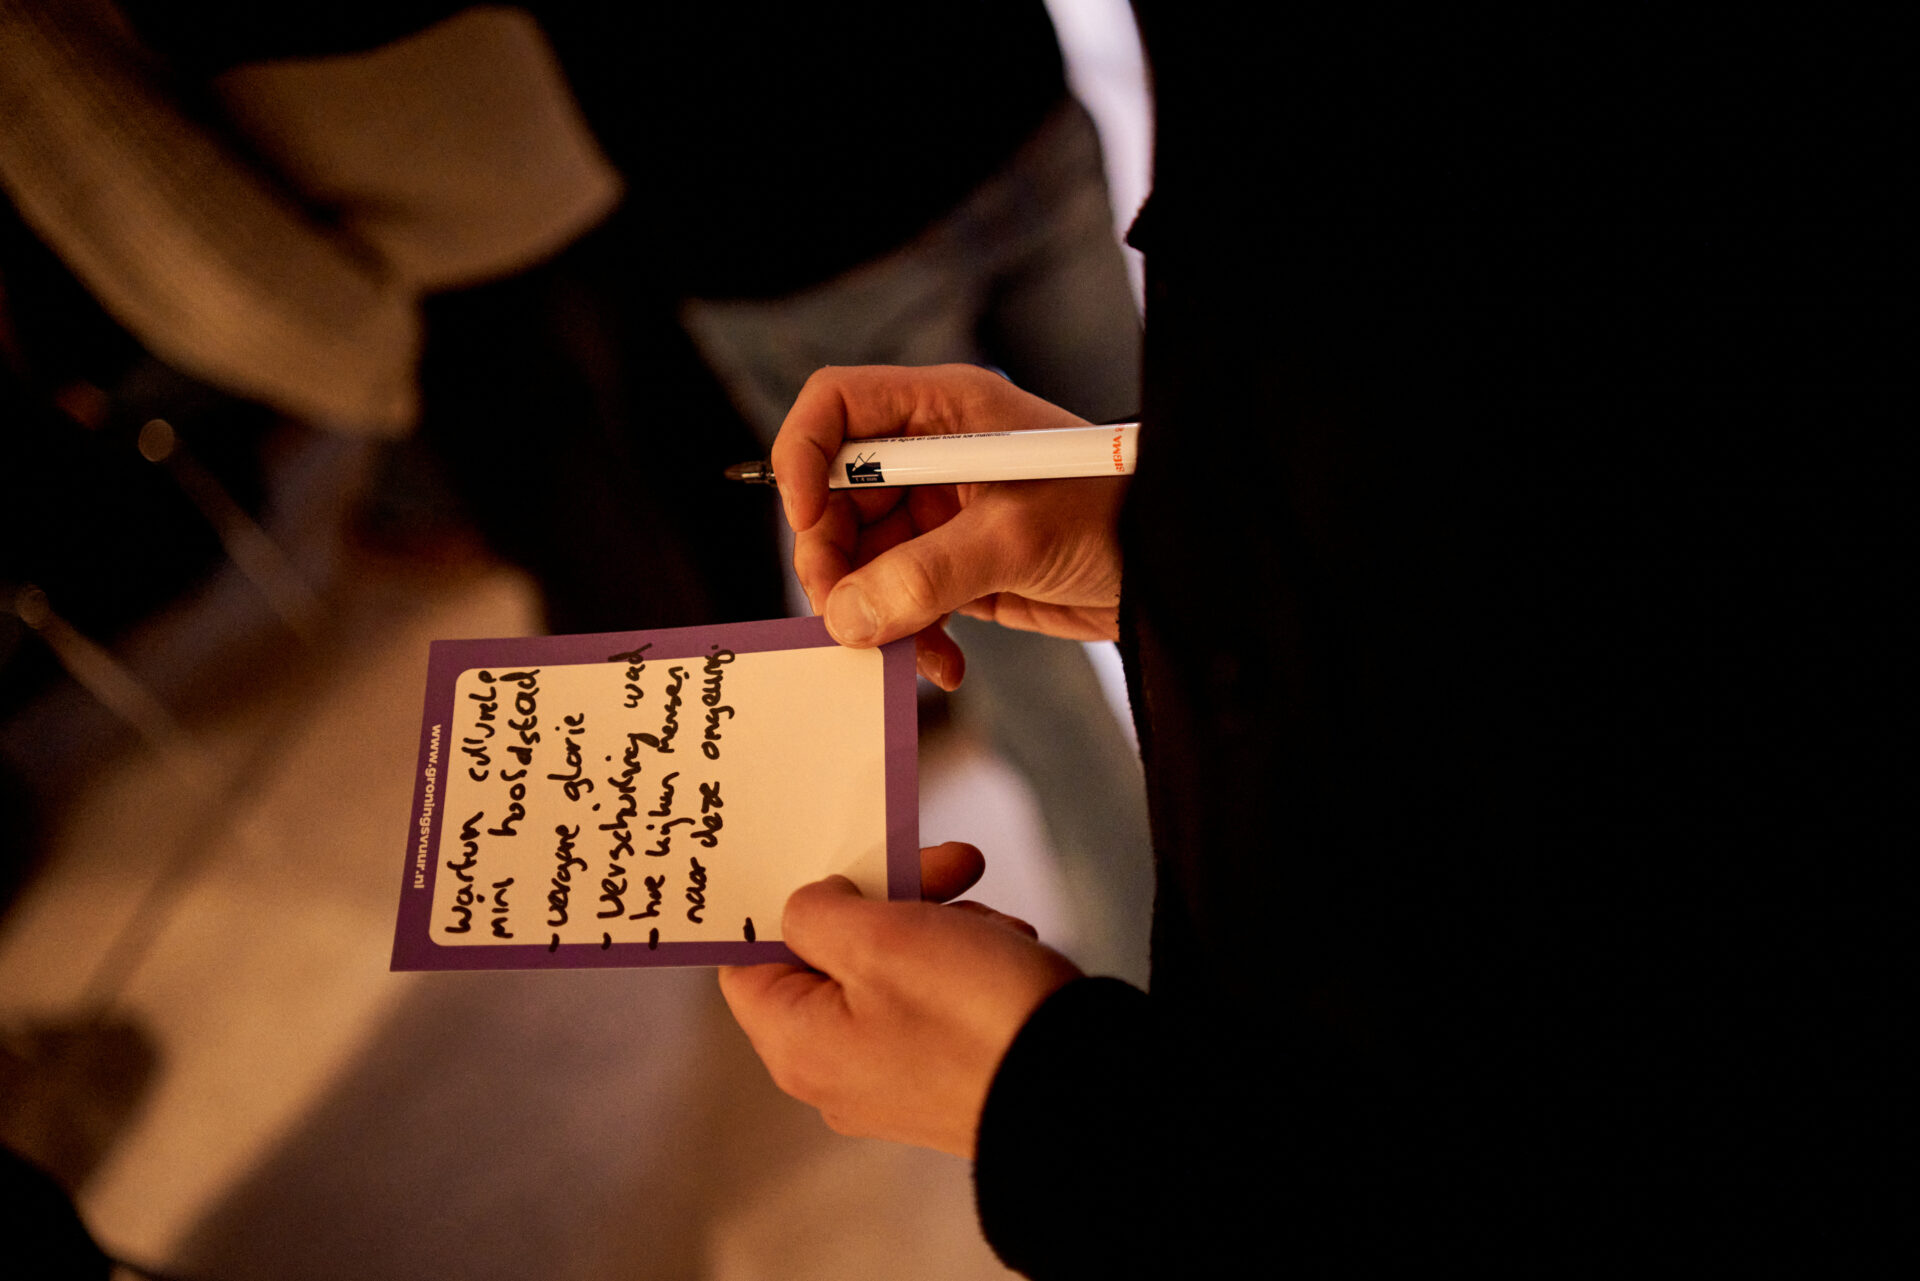 www.groningsvuur.nl
Warfum cultureLe
mini hoofdstad
- vergane glorie
- verschuiving wad
- hoe kijken mensen
naar deze omgeving.
-
SIGMA